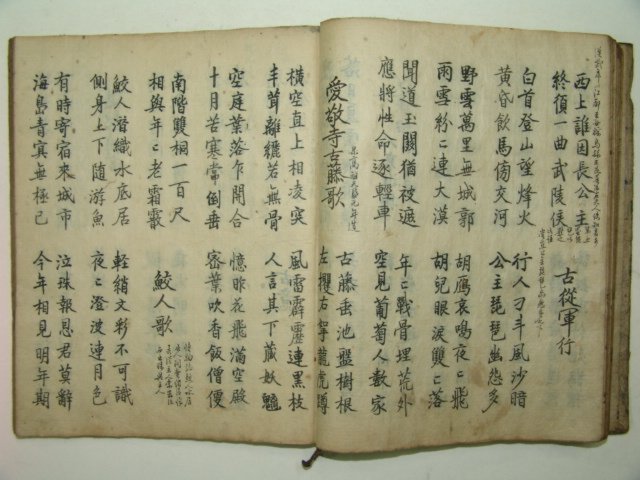 西上誰因長公主
終須一曲武陵侯
古從軍行
白首登山望烽火
黃昏飲馬傍交河
行人刁斗風沙暗
公主琵琶幽怨多
野雲萬里無城郭
雨雪紛〻連大漠
胡鴈哀鳴夜〻飛
胡兒眼淚雙〻落
聞道玉關猶被遮
應將性命逐輕車
年〻戰骨埋荒外
空見葡萄人數家
愛敬寺古藤歌
古藤垂池盤樹根
左攫右拏龍虎蹲
橫空直上相凌突
丰茸離纚若無骨
風雷霹靂連黑枝
人言其下藏妖魑
空庭葉落乍開合
十月苦寒常倒垂
憶昨花飛滿空殿
密葉吹香飯僧徧
南階雙桐一百尺
相與年〻老霜霰
鮫人歌
鮫人潛織水底居
側身上下隨游魚
輕綃文彩不可識
夜〻澄波連月色
有時寄宿來城市
海島青冥無極已
泣珠報恩君莫辭
今年相見明年期